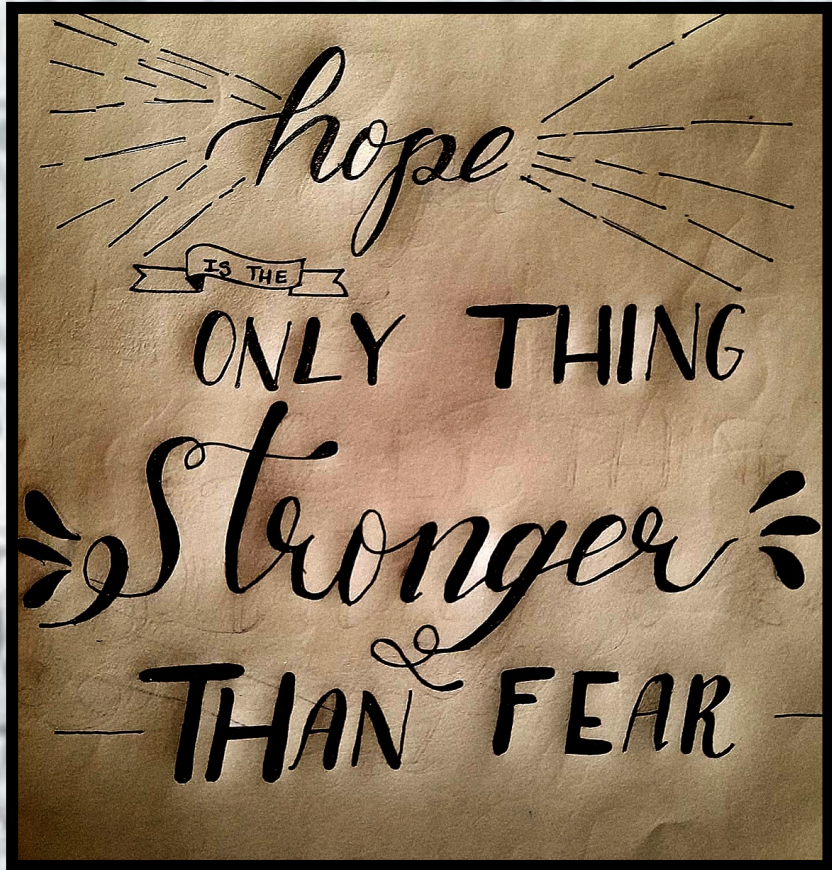 hope
IS THE
ONLY THING
Stronger
THAN FEAR